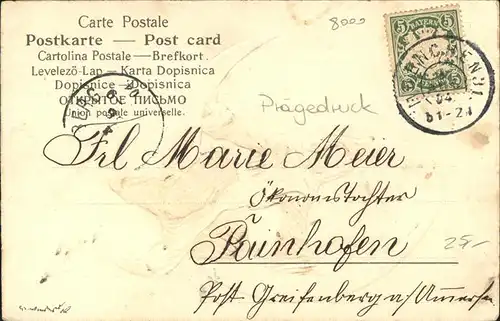 Carte Postale
8000
Postkarte — Post card
Cartolina Postale — Brefkort.
Levelező-Lap — Karta Dopisnica
Dopisnice — Dopisnica
ОТКРЫТОЕ ПИСЬМО
Union postale universelle.
5 BAYERN 5
Prägedruck
Frl Marie Meier
Ökonomstochter
Painhofen
25.-
Post Greifenberg a/Ammersee